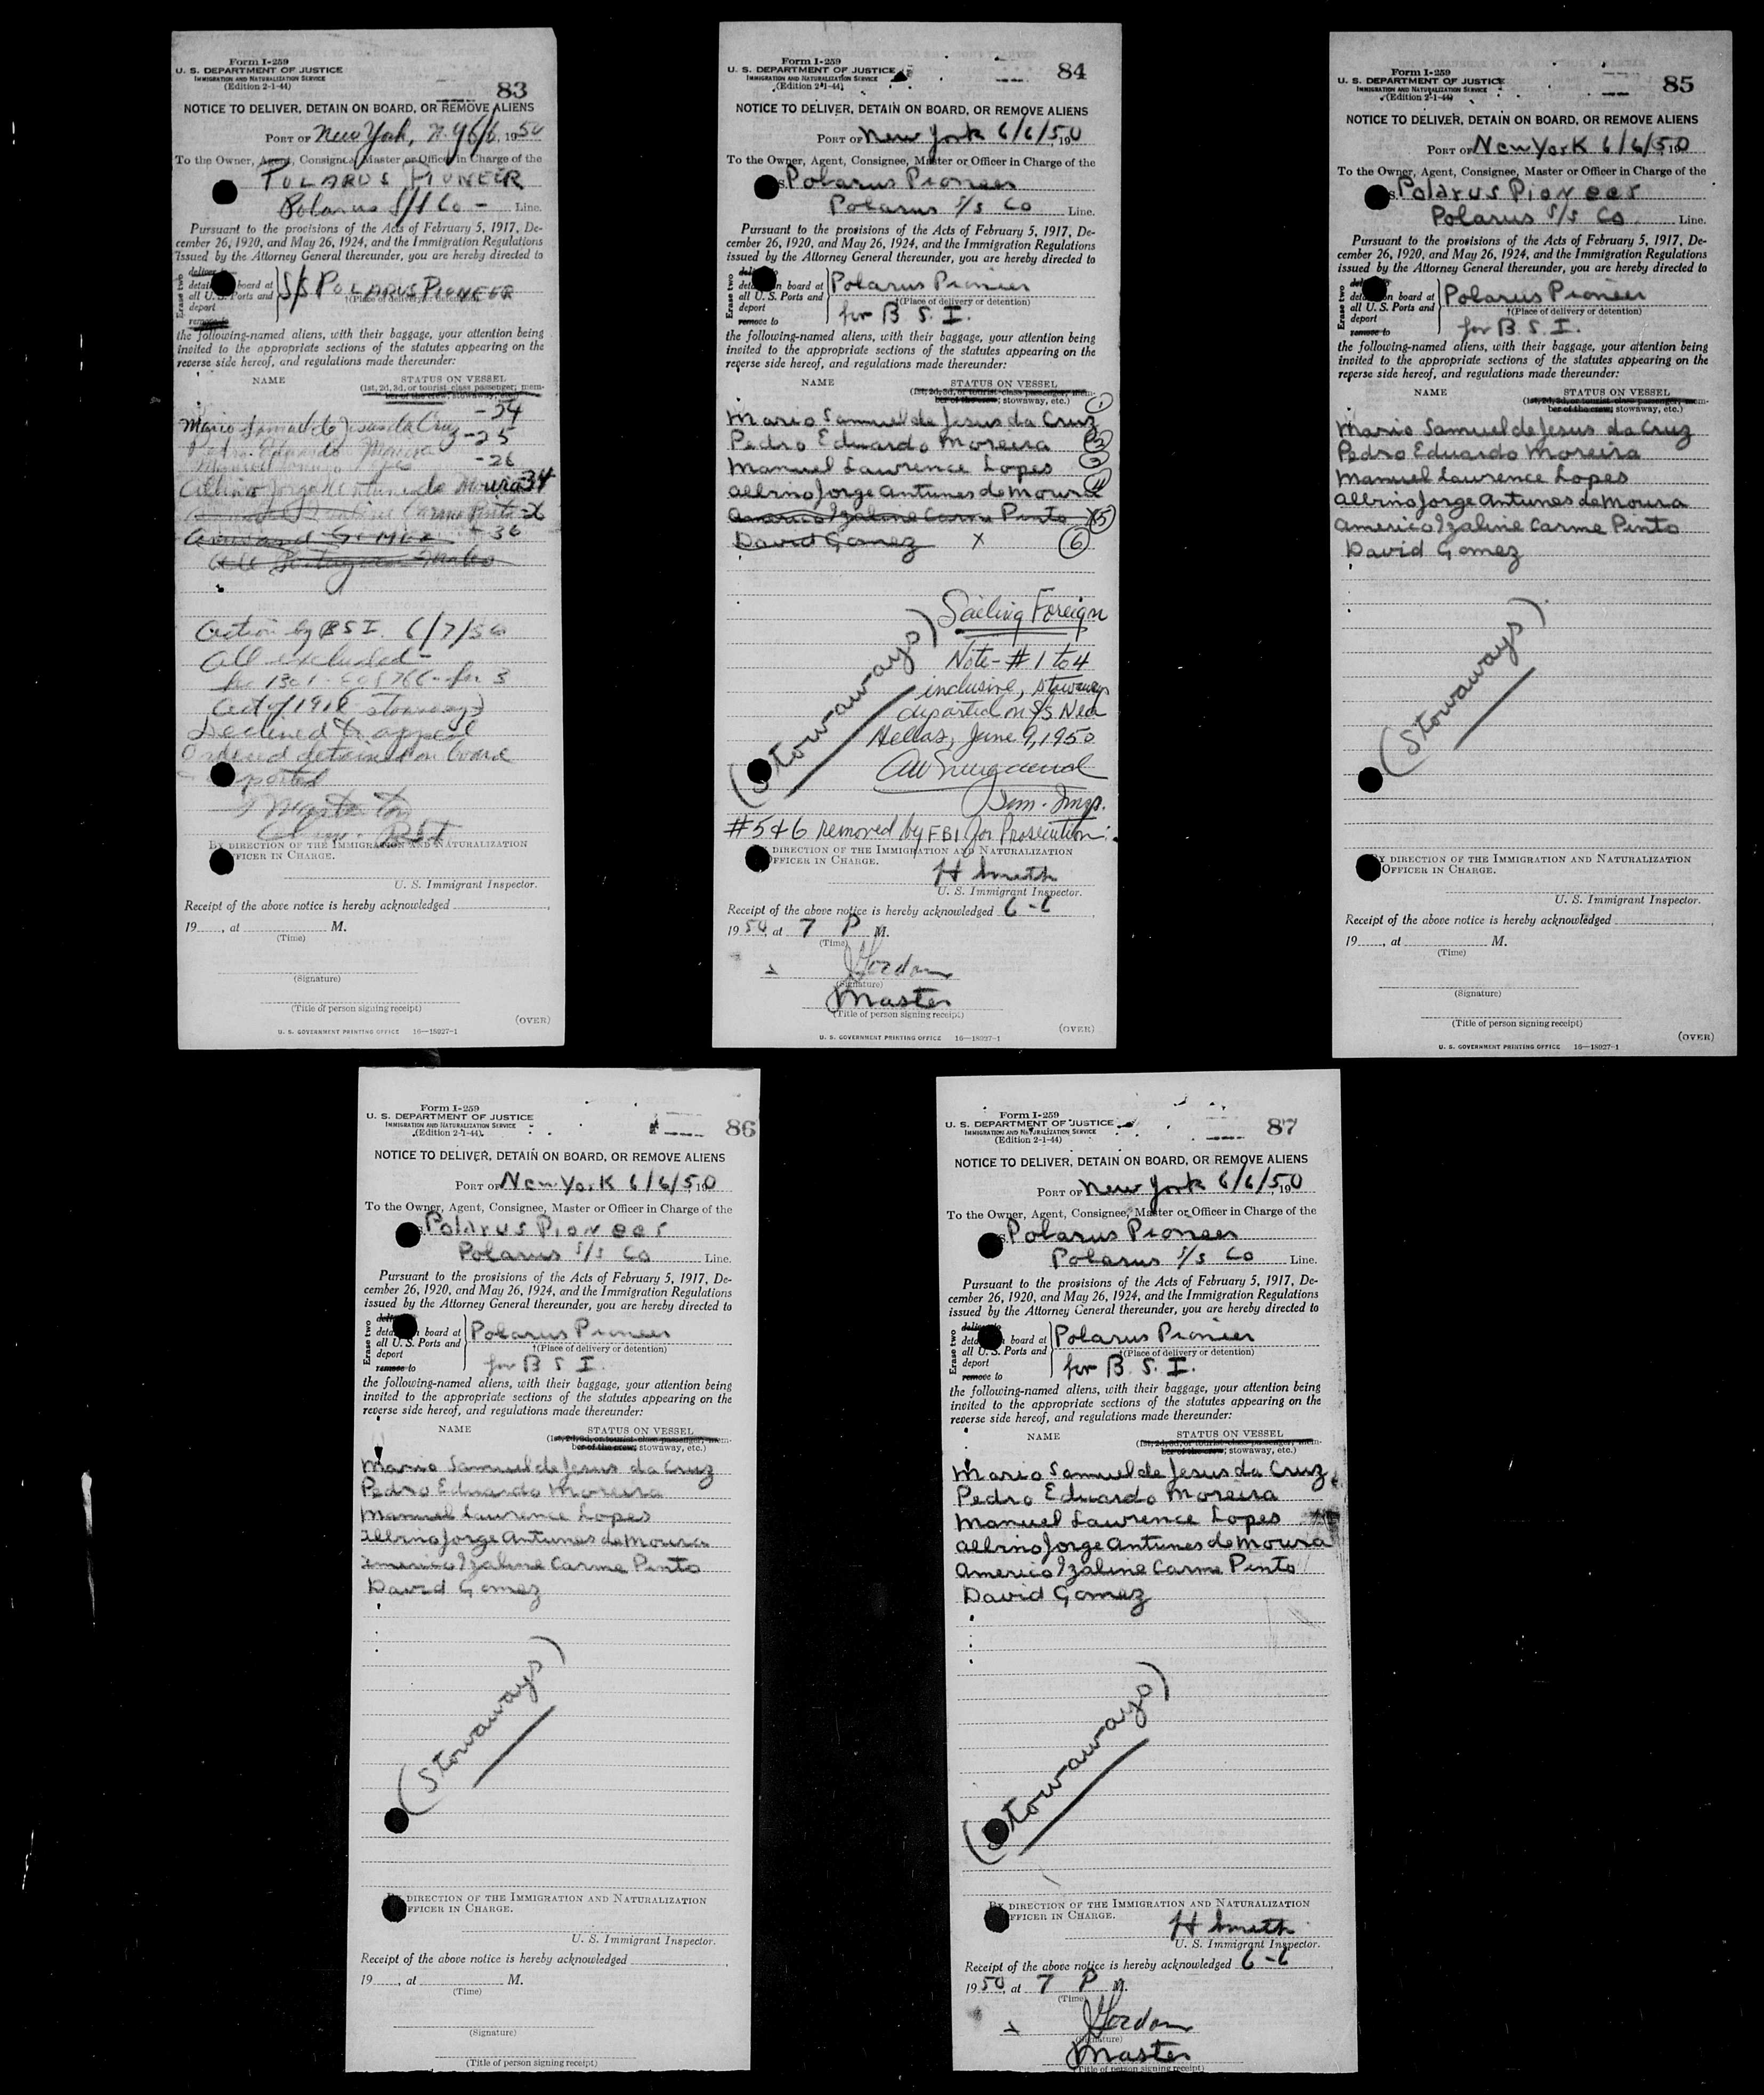 Form I-259
U. S. DEPARTMENT OF JUSTICE
IMMIGRATION AND NATURALIZATION SERVICE
(Edition 2-1-44)
83
NOTICE TO DELIVER, DETAIN ON BOARD, OR REMOVE ALIENS
PORT OF New York, N.Y. 6/6, 1950
To the Owner, Agent, Consignee, Master or Officer in Charge of the
POLARUS PIONEER
Polarus S/S Co - Line.
Pursuant to the provisions of the Acts of February 5, 1917, De-
cember 26, 1920, and May 26, 1924, and the Immigration Regulations
issued by the Attorney General thereunder, you are hereby directed to
Erase two
deliver
detain board at
all U. S. Ports and
deport
remove to
S/S POLARUS PIONEER
†(Place of delivery or detention)
the following-named aliens, with their baggage, your attention being
invited to the appropriate sections of the statutes appearing on the
reverse side hereof, and regulations made thereunder:
NAME STATUS ON VESSEL
(1st, 2d, 3d, or tourist class passenger; mem-
ber of the crew; stowaway, etc.)
Mario Samuel de Jesus da Cruz -24
Pedro Eduardo Moreira -25
Manuel Lopes -26
Albino Jorge Antunes de Moura 34
Izaline Carme Pinto
Gomez 36
All Portuguese Males
Action by BSI 6/7/50
All excluded -
Act of 1918 stowaways
Declined to appeal
Ordered detained on board
BSI
BY DIRECTION OF THE IMMIGRATION AND NATURALIZATION
OFFICER IN CHARGE.
U. S. Immigrant Inspector.
Receipt of the above notice is hereby acknowledged
19 , at M.
(Time)
(Signature)
(Title of person signing receipt)
(OVER)
U. S. GOVERNMENT PRINTING OFFICE 16—18027-1
Form I-259
U. S. DEPARTMENT OF JUSTICE
IMMIGRATION AND NATURALIZATION SERVICE
(Edition 2-1-44)
84
NOTICE TO DELIVER, DETAIN ON BOARD, OR REMOVE ALIENS
PORT OF New York 6/6/50, 19
To the Owner, Agent, Consignee, Master or Officer in Charge of the
Polarus Pioneer
Polarus S/S Co Line.
Pursuant to the provisions of the Acts of February 5, 1917, De-
cember 26, 1920, and May 26, 1924, and the Immigration Regulations
issued by the Attorney General thereunder, you are hereby directed to
Erase two
deliver
detain on board at
all U. S. Ports and
deport
remove to
Polarus Pioneer
†(Place of delivery or detention)
for B. S. I.
the following-named aliens, with their baggage, your attention being
invited to the appropriate sections of the statutes appearing on the
reverse side hereof, and regulations made thereunder:
NAME STATUS ON VESSEL
(1st, 2d, 3d, or tourist class passenger; mem-
ber of the crew; stowaway, etc.)
Mario Samuel de Jesus da Cruz 1
Pedro Eduardo Moreira 2
Manuel Lawrence Lopes 3
Albino Jorge Antunes de Moura 4
Americo Izaline Carme Pinto X 5
David Gomez X 6
Sailing Foreign
(Stowaways)
Note - # 1 to 4
inclusive, stowaways
departed on S/S Nea
Hellas, June 9, 1950
Imm. Insp.
#5 & 6 removed by FBI for Prosecution.
BY DIRECTION OF THE IMMIGRATION AND NATURALIZATION
OFFICER IN CHARGE.
H Smith
U. S. Immigrant Inspector.
Receipt of the above notice is hereby acknowledged 6-6
1950, at 7 P M.
(Time)
J Gordon
(Signature)
Master
(Title of person signing receipt)
(OVER)
U. S. GOVERNMENT PRINTING OFFICE 16—18027-1
Form I-259
U. S. DEPARTMENT OF JUSTICE
IMMIGRATION AND NATURALIZATION SERVICE
(Edition 2-1-44)
85
NOTICE TO DELIVER, DETAIN ON BOARD, OR REMOVE ALIENS
PORT OF New York 6/6/50, 19
To the Owner, Agent, Consignee, Master or Officer in Charge of the
Polarus Pioneer
Polarus S/S Co Line.
Pursuant to the provisions of the Acts of February 5, 1917, De-
cember 26, 1920, and May 26, 1924, and the Immigration Regulations
issued by the Attorney General thereunder, you are hereby directed to
Erase two
deliver
detain on board at
all U. S. Ports and
deport
remove to
Polarus Pioneer
†(Place of delivery or detention)
for B. S. I.
the following-named aliens, with their baggage, your attention being
invited to the appropriate sections of the statutes appearing on the
reverse side hereof, and regulations made thereunder:
NAME STATUS ON VESSEL
(1st, 2d, 3d, or tourist class passenger; mem-
ber of the crew; stowaway, etc.)
Mario Samuel de Jesus da Cruz
Pedro Eduardo Moreira
Manuel Lawrence Lopes
Albino Jorge Antunes de Moura
Americo Izaline Carme Pinto
David Gomez
(Stowaways)
BY DIRECTION OF THE IMMIGRATION AND NATURALIZATION
OFFICER IN CHARGE.
U. S. Immigrant Inspector.
Receipt of the above notice is hereby acknowledged
19 , at M.
(Time)
(Signature)
(Title of person signing receipt)
(OVER)
U. S. GOVERNMENT PRINTING OFFICE 16—18027-1
Form I-259
U. S. DEPARTMENT OF JUSTICE
IMMIGRATION AND NATURALIZATION SERVICE
(Edition 2-1-44)
86
NOTICE TO DELIVER, DETAIN ON BOARD, OR REMOVE ALIENS
PORT OF New York 6/6/50, 19
To the Owner, Agent, Consignee, Master or Officer in Charge of the
Polarus Pioneer
Polarus S/S Co Line.
Pursuant to the provisions of the Acts of February 5, 1917, De-
cember 26, 1920, and May 26, 1924, and the Immigration Regulations
issued by the Attorney General thereunder, you are hereby directed to
Erase two
deliver
detain on board at
all U. S. Ports and
deport
remove to
Polarus Pioneer
†(Place of delivery or detention)
for B S I.
the following-named aliens, with their baggage, your attention being
invited to the appropriate sections of the statutes appearing on the
reverse side hereof, and regulations made thereunder:
NAME STATUS ON VESSEL
(1st, 2d, 3d, or tourist class passenger; mem-
ber of the crew; stowaway, etc.)
Mario Samuel de Jesus da Cruz
Pedro Eduardo Moreira
Manuel Lawrence Lopes
Albino Jorge Antunes de Moura
Americo Izaline Carme Pinto
David Gomez
(Stowaways)
BY DIRECTION OF THE IMMIGRATION AND NATURALIZATION
OFFICER IN CHARGE.
U. S. Immigrant Inspector.
Receipt of the above notice is hereby acknowledged
19 , at M.
(Time)
(Signature)
(Title of person signing receipt)
Form I-259
U. S. DEPARTMENT OF JUSTICE
IMMIGRATION AND NATURALIZATION SERVICE
(Edition 2-1-44)
87
NOTICE TO DELIVER, DETAIN ON BOARD, OR REMOVE ALIENS
PORT OF New York 6/6/50, 19
To the Owner, Agent, Consignee, Master or Officer in Charge of the
Polarus Pioneer
Polarus S/S Co Line.
Pursuant to the provisions of the Acts of February 5, 1917, De-
cember 26, 1920, and May 26, 1924, and the Immigration Regulations
issued by the Attorney General thereunder, you are hereby directed to
Erase two
deliver
detain on board at
all U. S. Ports and
deport
remove to
Polarus Pioneer
†(Place of delivery or detention)
for B. S. I.
the following-named aliens, with their baggage, your attention being
invited to the appropriate sections of the statutes appearing on the
reverse side hereof, and regulations made thereunder:
NAME STATUS ON VESSEL
(1st, 2d, 3d, or tourist class passenger; mem-
ber of the crew; stowaway, etc.)
Mario Samuel de Jesus da Cruz
Pedro Eduardo Moreira
Manuel Lawrence Lopes
Albino Jorge Antunes de Moura
Americo Izaline Carme Pinto
David Gomez
(Stowaways)
BY DIRECTION OF THE IMMIGRATION AND NATURALIZATION
OFFICER IN CHARGE.
H Smith
U. S. Immigrant Inspector.
Receipt of the above notice is hereby acknowledged 6-6
1950, at 7 P M.
(Time)
J Gordon
(Signature)
Master
(Title of person signing receipt)